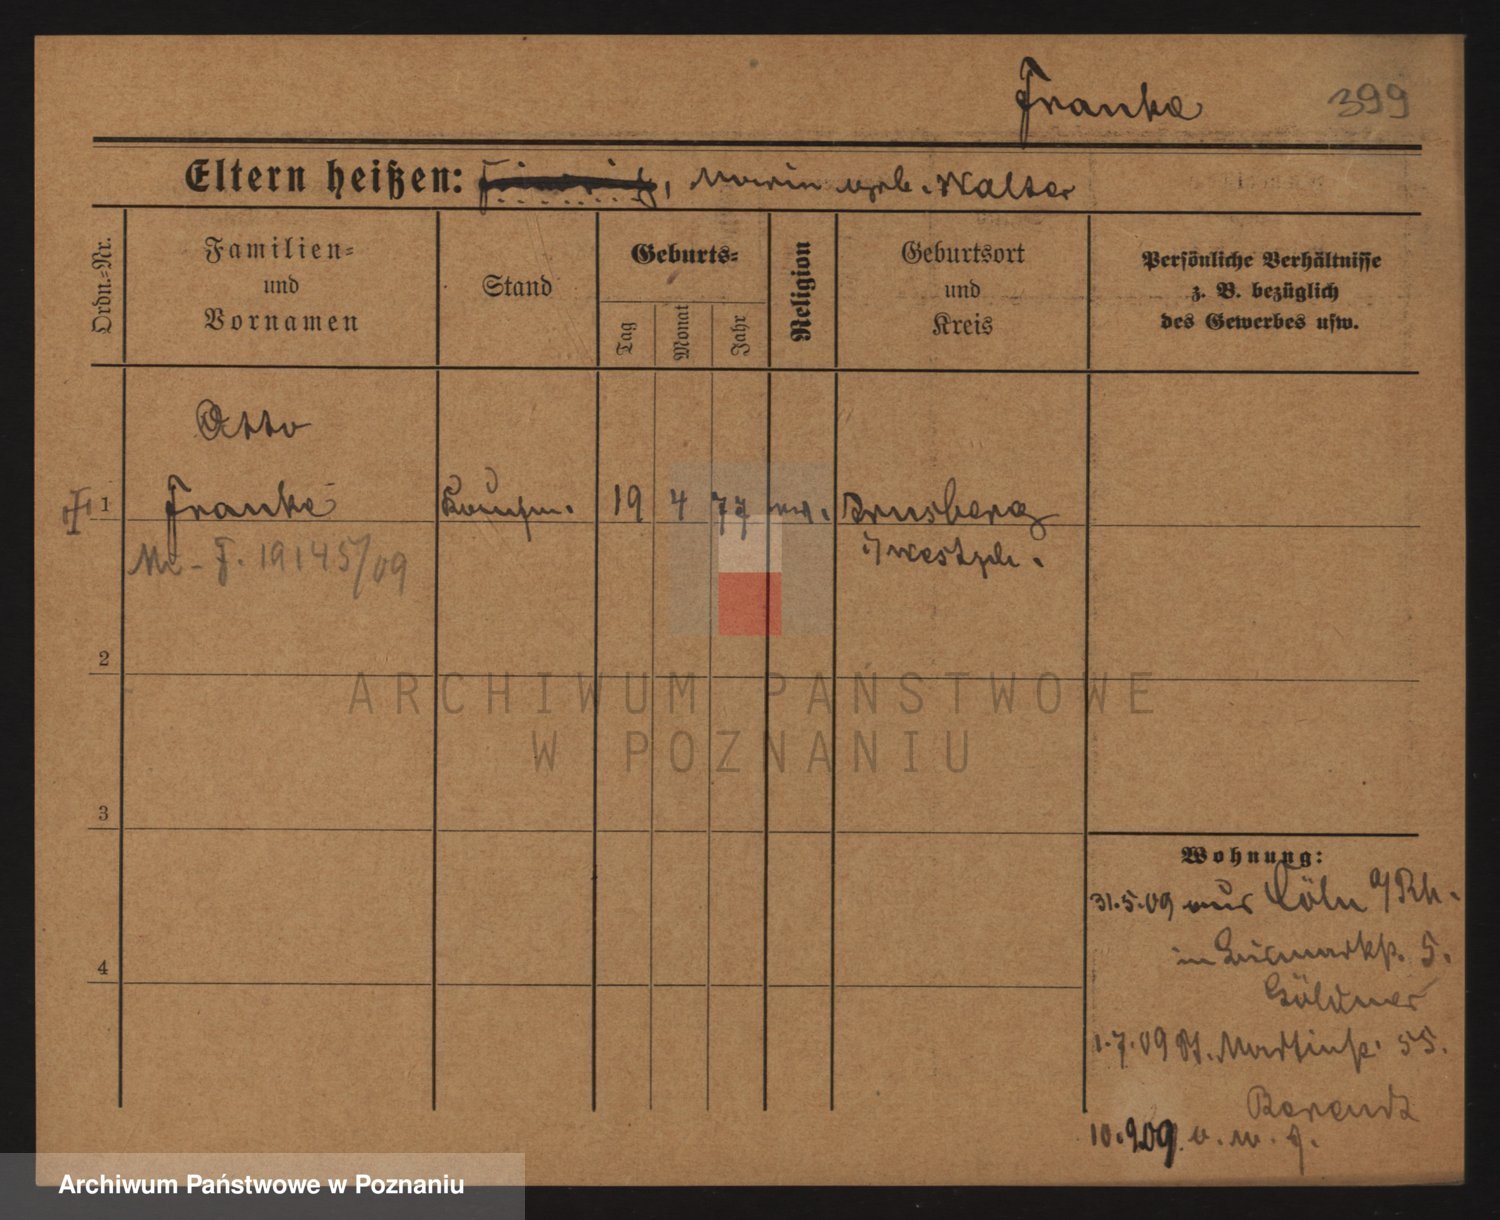 Franke 399
Eltern heißen: Marie geb. Walter
Ordn.-Nr.
Familien-
und
Vornamen
Stand
Geburts-
Tag
Monat
Jahr
Religion
Geburtsort
und
Kreis
Persönliche Verhältnisse
z. B. bezüglich
des Gewerbes usw.
Otto
1 Franke Kaufm. 19 4 77 Arnsberg
i/Westph.
F. 19145/09
2
3
4
Wohnung:
31.5.09 aus Cöln a/Rh.
in Bismarkstr. 5.
Göldner
1.7.09 St. Martinstr. 55.
Berendt
10.9.09
ARCHIWUM PAŃSTWOWE
W POZNANIU
Archiwum Państwowe w Poznaniu